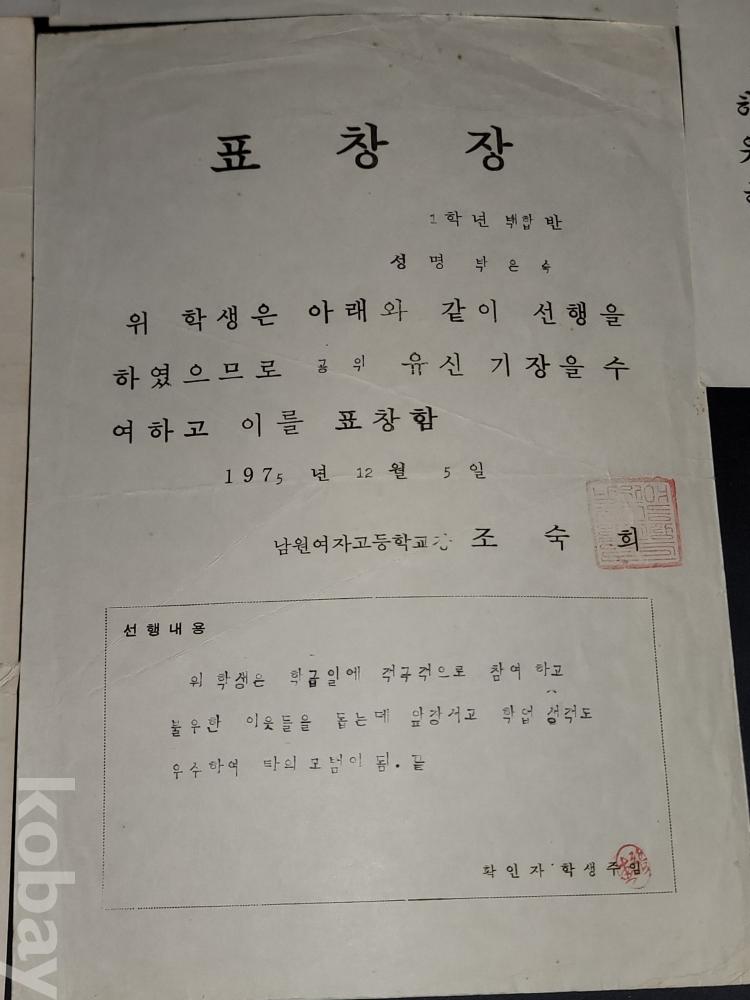 표 창 장
1학년 백합 반
성 명 박 은 숙
위 학생은 아래와 같이 선행을
하였으므로 공위 유신 기장을 수
여하고 이를 표창함
1975 년 12 월 5 일
남원여자고등학교장 조 숙 희
선행내용
위 학생은 학급일에 적극적으로 참여 하고
불우한 이웃들을 돕는데 앞강서고 학업 성적도
우수하여 타의 모범이 됨. 끝
확인자 학생주임
kobay